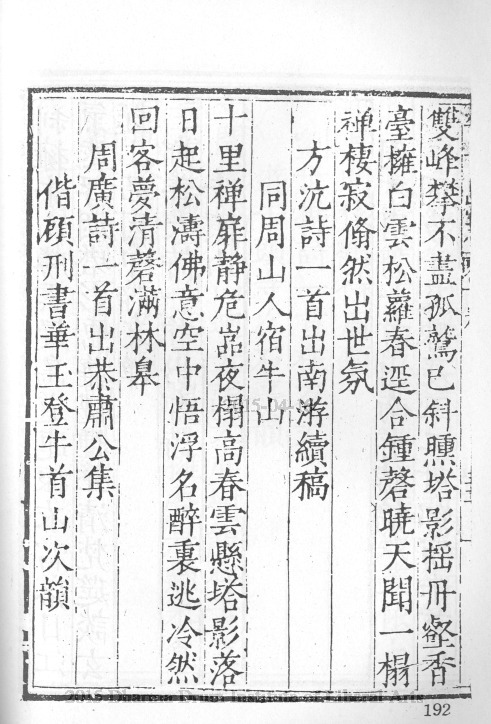 雙峰攀不盡孤鶩已斜曛塔影揺丹壑香
臺擁白雲松蘿春逕合鍾磬曉天聞一榻
禅棲寂翛然出世氛
方沆詩一首出南游續稿
同周山人宿牛山
十里禅扉静危嵓夜榻高春雲懸塔影落
日起松濤佛意空中悟浮名醉裏逃冷然
回客夢清磬滿林皋
周廣詩一首出恭肅公集
偕顧刑書華玉登牛首山次韻
192